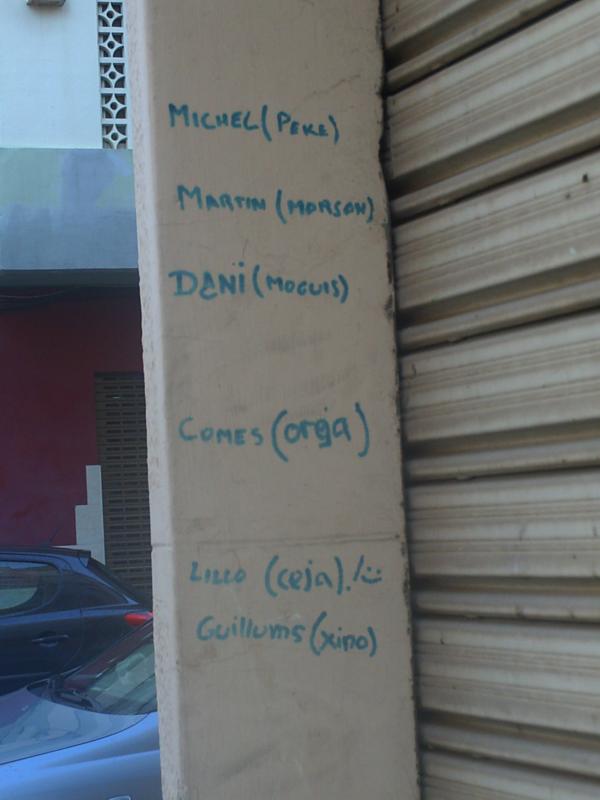 MICHEL (PEKE)
MARTIN (MORSON)
DANI (MOGUIS)
COMES (oreja)
LILLO (ceja). /:)
Guillums (xino)